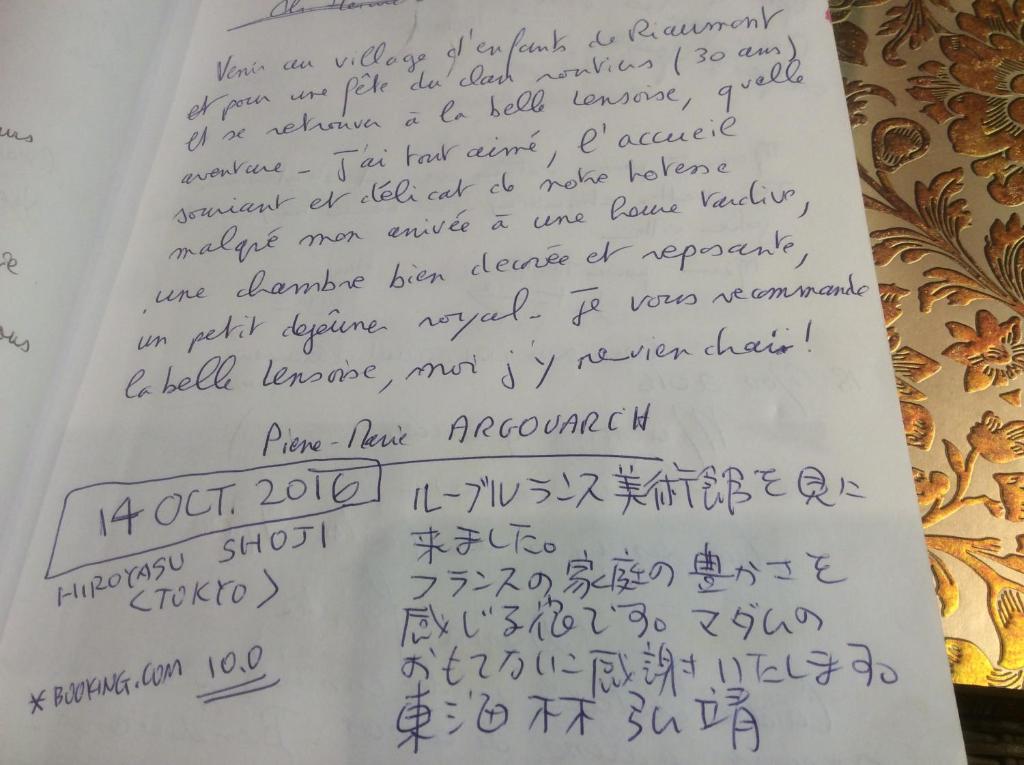 Venir au village d'enfants de Riaumont
et pour une fête du clan routiers (30 ans)
et se retrouver à la belle Lensoise, quelle
aventure - J'ai tout aimé, l'accueil
souriant et délicat de notre hotesse
malgré mon arrivée à une heure tardive,
une chambre bien decorée et reposante,
un petit dejeûner royal - Je vous recommande
la belle Lensoise, moi j'y revien
Pierre-Marie ARGOUARCH
14 OCT. 2016
HIROYASU SHOJI
<TOKYO>
* BOOKING.COM 10.0
ルーブルランス美術館を見に
来ました。
フランスの家庭の豊かさを
感じる宿です。マダムの
おもてなしに感謝いたします。
東海林 弘靖